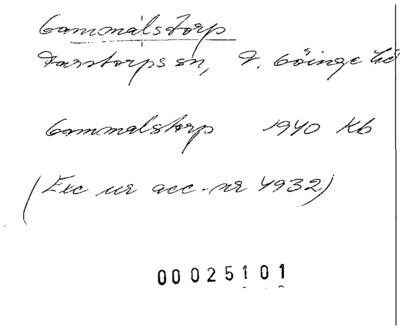 Gammalstorp
Farstorps sn, V. Göinge hd
Gammalstorp 1940 Kb
(Exc ur acc.nr 4932)
00025101